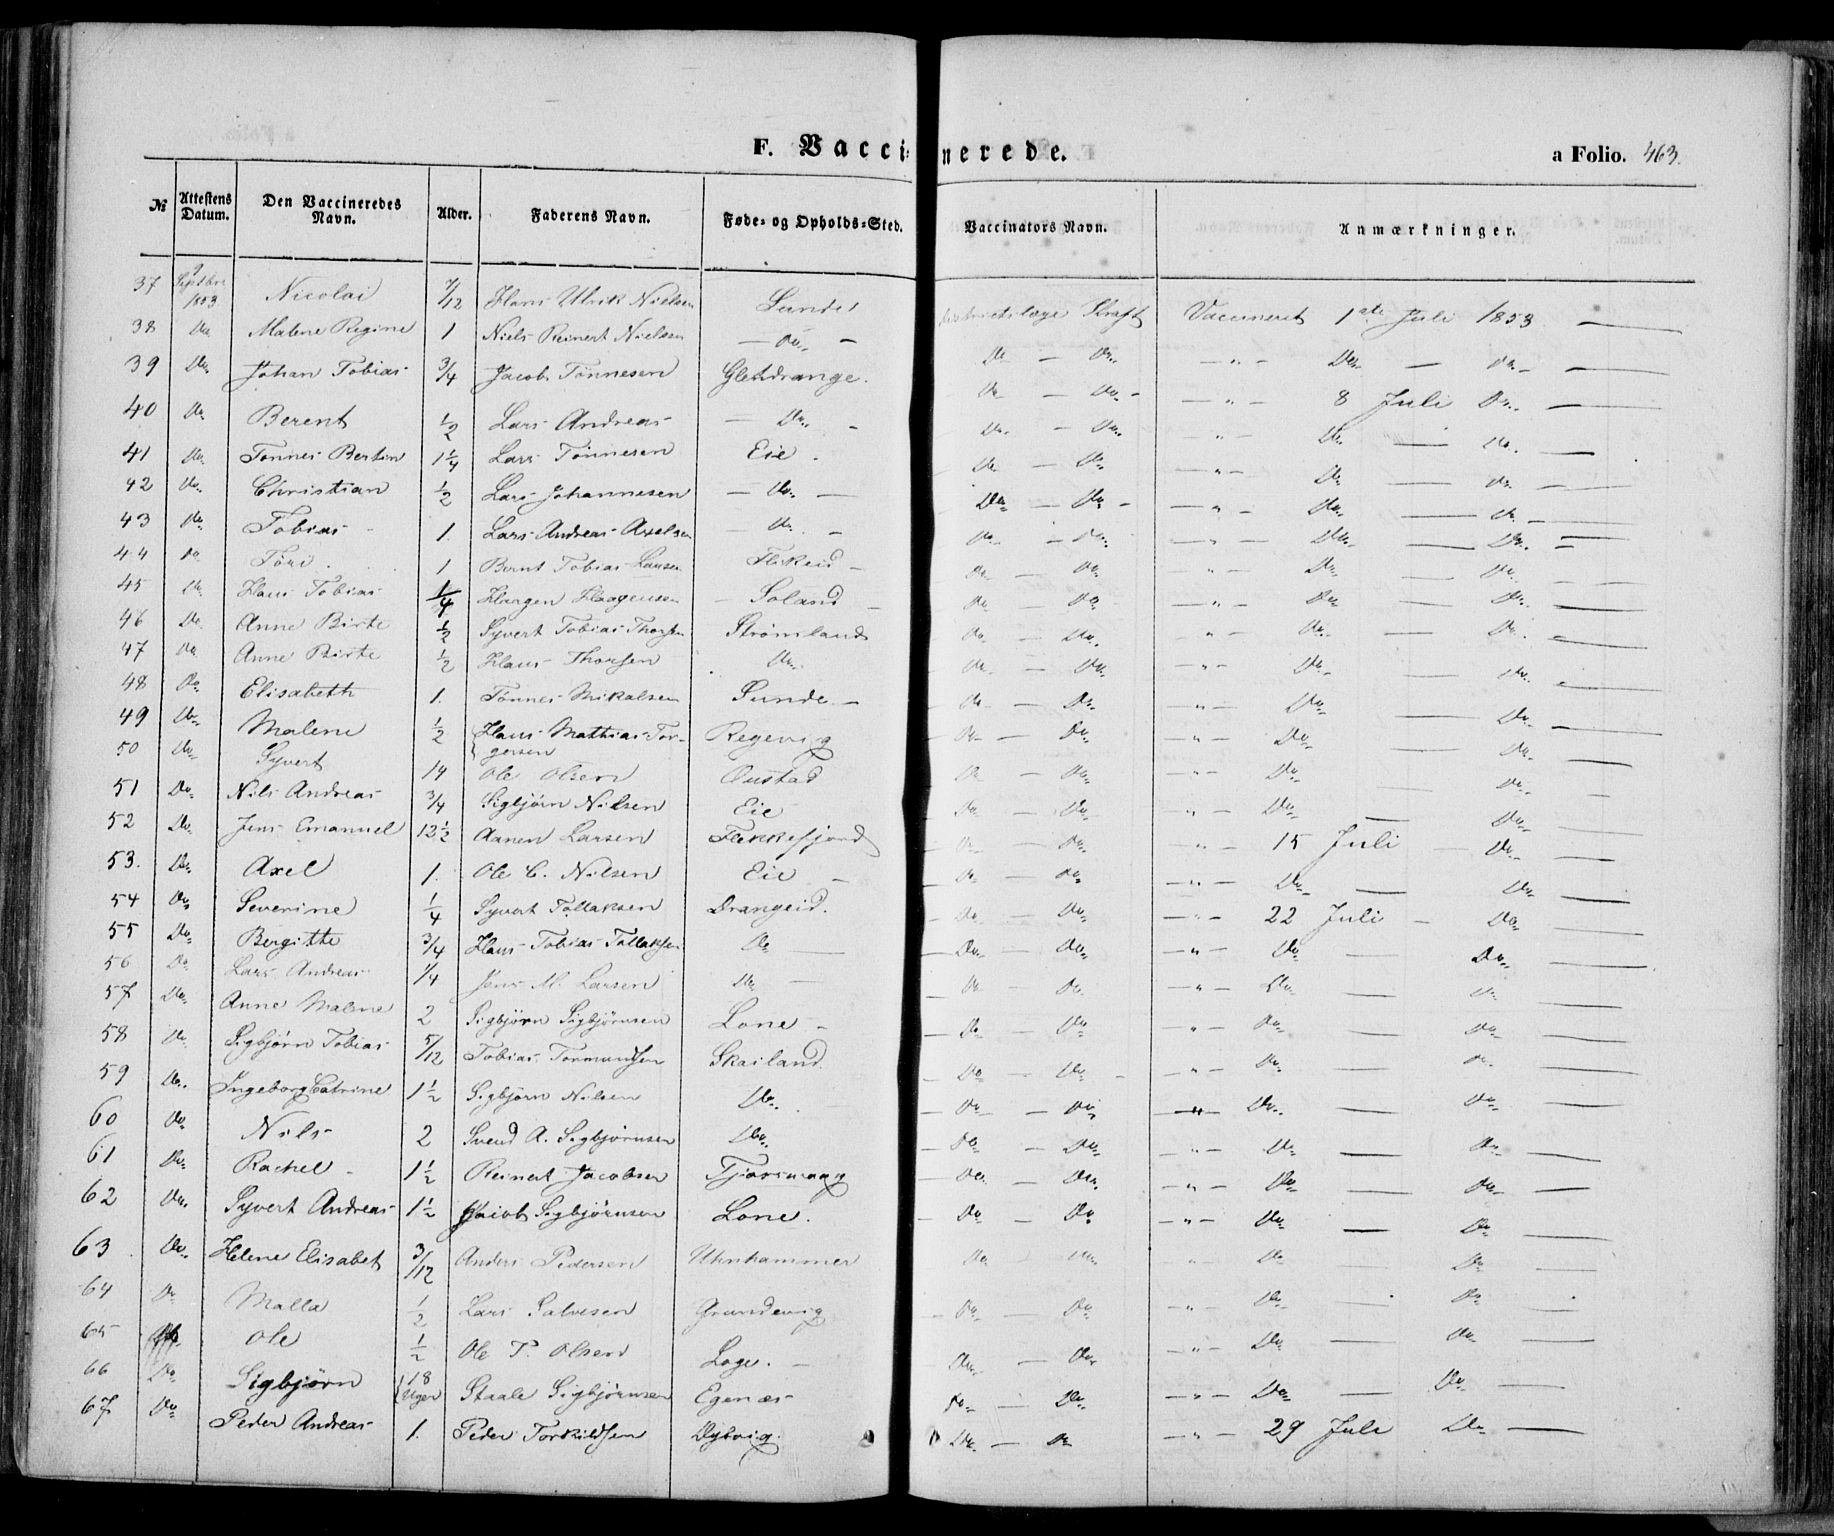 F. Vaccinerede. a Folio. 463.
№ Attestens Datum. Den Vaccineredes Navn. Alder. Faderens Navn. Føde- og Opholds-Sted. Vaccinators Navn. Anmærkninger.
37 9 Septbr 1853 Nicolai 7/12 Hans Ulrik Nielsen Sunde Districtslæge Kraft Vaccineret 1ste Juli 1853
38 Do. Malene Regine 1 Niels Reinert Nielsen — Do. — Do — Do. — " — Do. — Do. —
39 Do. Johan Tobias 3/4 Jacob Tönnesen Glendrange. Do — Do. — — " — 8 Juli Do. —
40 Do. Berent 1/2 Lars Andreas — Do. — Do. — Do. " — Do — Do. —
41 Do. Tönnes Bertin 1 1/4 Lars Tönnesen Eie. Do — Do " — Do — Do. —
42 Do. Christian 1/2 Lars Johannesen — Do. — Do — Do — — " — Do. — Do. —
43 Do Tobias 1. Lars Andreas Axelsen Do. — Do — Do. — " — Do. — Do. —
44 Do Töri. 1 Bernt Tobias Larsen Flikeid — Do. — Do. — " — Do. — Do. —
45 Do. Hans Tobias 1/4 Haagen Haagensen — Soland — Do — Do — " — Do — Do. —
46 Do. Anne Birte 1/2 Syvert Tobias Thorsen Strömland Do — Do. — " — Do. — Do. —
47 Do Anne Birte 1/2 Hans Thorsen Do. Do. — Do — " — Do. — Do. —
48 Do. Elisabeth 1. Tönnes Mikalsen Sunde — Do — Do. " — Do. — Do. —
49 Do. Malene 1/2 Hans Mathias Tor-
gersen Regevig Do — Do " — Do. — Do. —
50 Do. Syvert 14 Ole Olsen Oustad Do — Do. " — Do. — Do. —
51 Do. Nils Andreas 3/4 Sigbjörn Nilsen Eie Do — Do. " — Do. — Do. —
52 Do. Jens Emanuel 12 1/2 Aanen Larsen Flekkefjord Do — Do. " — 15 Juli — Do. —
53. Do. Axel 1. Ole C. Nilsen Eie — Do — Do — " — Do. — Do. —
54 Do. Severine 1/4 Syvert Tollaksen Drangeid. Do. — Do. — " — 22 Juli — Do. —
55 Do. Bergitte 3/4 Hans Tobias Tollaksen Do — Do. — Do. " — Do. — Do. —
56 Do. Lars Andreas 1/4 Jens M. Larsen Do. — Do — Do. " — Do. — Do. —
57 Do. Anne Malene 2 Sigbjörn Sigbjörnsen Lone — Do — Do " — Do. — Do. —
58 Do. Sigbjörn Tobias 5/12 Tobias Tormundsen Skailand. Do — Do. — " — Do. — Do. —
59 Do. Ingeborg Catrine 1 1/2 Sigbjörn Nilsen Do. — Do — Do. — " — Do. — Do. —
60 Do. Nils 2 Svend A. Sigbjörnsen Do. — Do — Do. — " — Do. — Do. —
61 Do. Rachel — 1 1/2 Reinert Jacobsen Tjørsmaag — Do. — Do. — " — Do. — Do. —
62 Do. Syvert Andreas 1 1/2 Jacob Sigbjörnsen Lone. — Do — Do. — " — Do. — Do. —
63 Do. Helene Elisabet 3/12 Anders Pedersen Uhnhammer Do. — Do. — " — Do. — Do. —
64 Do. Malla 1/2 Lars Salvesen Grundevig — Do. — Do. — " — Do. — Do. —
65 Ole 1/2 Ole T. Olsen Loge. — Do. — Do. — " — Do. — Do. —
66 Do. Sigbjörn 18 Uger Staale Sigbjörnsen Egenæs Do — Do. — " — Do. — Do. —
67 Do. Peder Andreas 1. Peder Torkildsen Dybvig. Do. — Do — " — 29 Juli Do. —